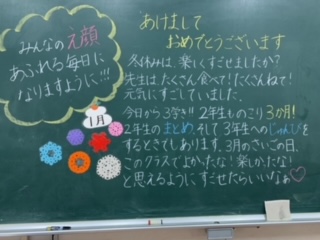 みんなのえ顔
あふれる毎日に
なりますように!!!
1月
あけまして
おめでとうございます
冬休みは、楽しくすごせましたか?
先生はたくさん食べて!たくさんねて!
元気にすごしていました。
今日から3学き!! 2年生ものこり3か月!
2年生のまとめ、そして3年生へのじゅんび
をするときでもあります。3月のさいごの日、
このクラスでよかったな!楽しかったな!
と思えるようにすごせたらいいなぁ